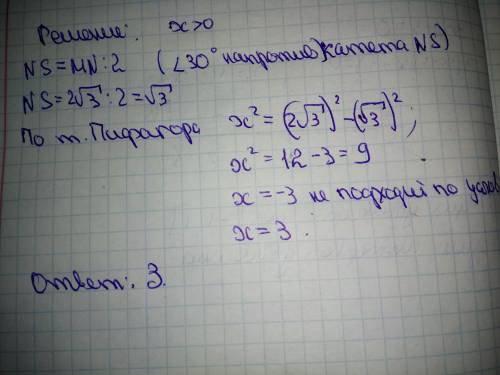 Решение: x>0
NS=MN:2 (∠30° напротив катета NS)
NS=2√3:2=√3
По т. Пифагора x²=(2√3)²-(√3)²;
x²=12-3=9
x=-3 не подходит по
x=3.
Ответ: 3.